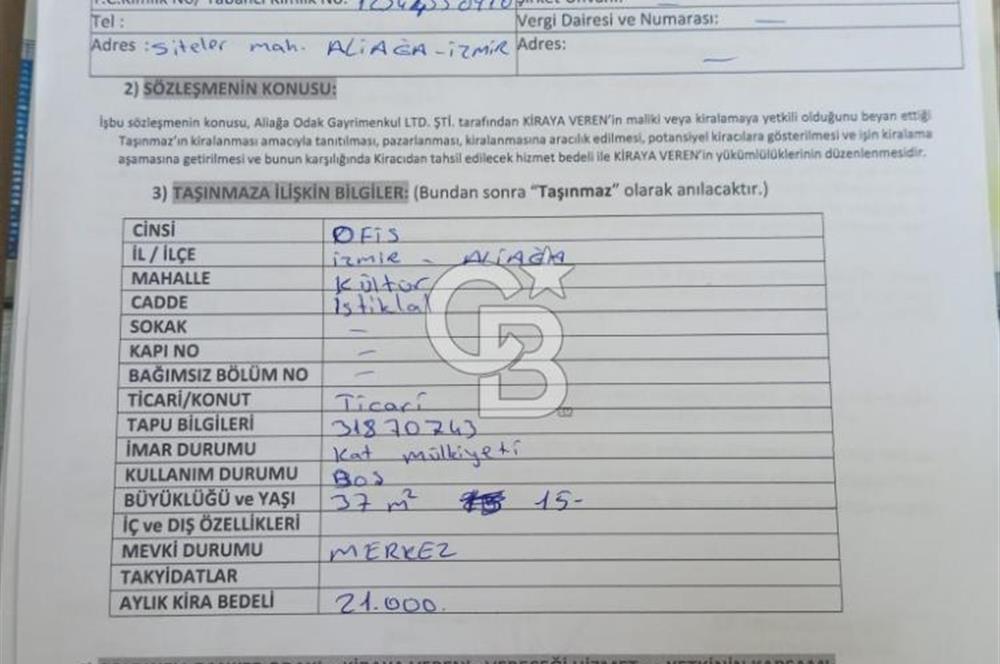 Tel :
Vergi Dairesi ve Numarası: —
Adres : Siteler mah. ALİAĞA-İZMİR
Adres: —
2) SÖZLEŞMENİN KONUSU:
İşbu sözleşmenin konusu, Aliağa Odak Gayrimenkul LTD. ŞTİ. tarafından KİRAYA VEREN'in maliki veya kiralamaya yetkili olduğunu beyan ettiği
Taşınmaz'ın kiralanması amacıyla tanıtılması, pazarlanması, kiralanmasına aracılık edilmesi, potansiyel kiracılara gösterilmesi ve işin kiralama
aşamasına getirilmesi ve bunun karşılığında Kiracıdan tahsil edilecek hizmet bedeli ile KİRAYA VEREN'in yükümlülüklerinin düzenlenmesidir.
3) TAŞINMAZA İLİŞKİN BİLGİLER: (Bundan sonra "Taşınmaz" olarak anılacaktır.)
CİNSİ OFİS
İL / İLÇE İZMİR - ALİAĞA
MAHALLE Kültür
CADDE İstiklal
SOKAK —
KAPI NO —
BAĞIMSIZ BÖLÜM NO —
TİCARİ/KONUT Ticari
TAPU BİLGİLERİ 31870743
İMAR DURUMU Kat mülkiyeti
KULLANIM DURUMU Boş
BÜYÜKLÜĞÜ ve YAŞI 37 m² 15-
İÇ ve DIŞ ÖZELLİKLERİ
MEVKİ DURUMU MERKEZ
TAKYİDATLAR
AYLIK KİRA BEDELİ 21.000.
CB